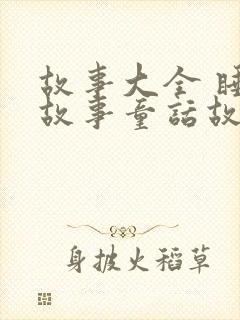 故事大全 睡
故事童話故
身披火稻草